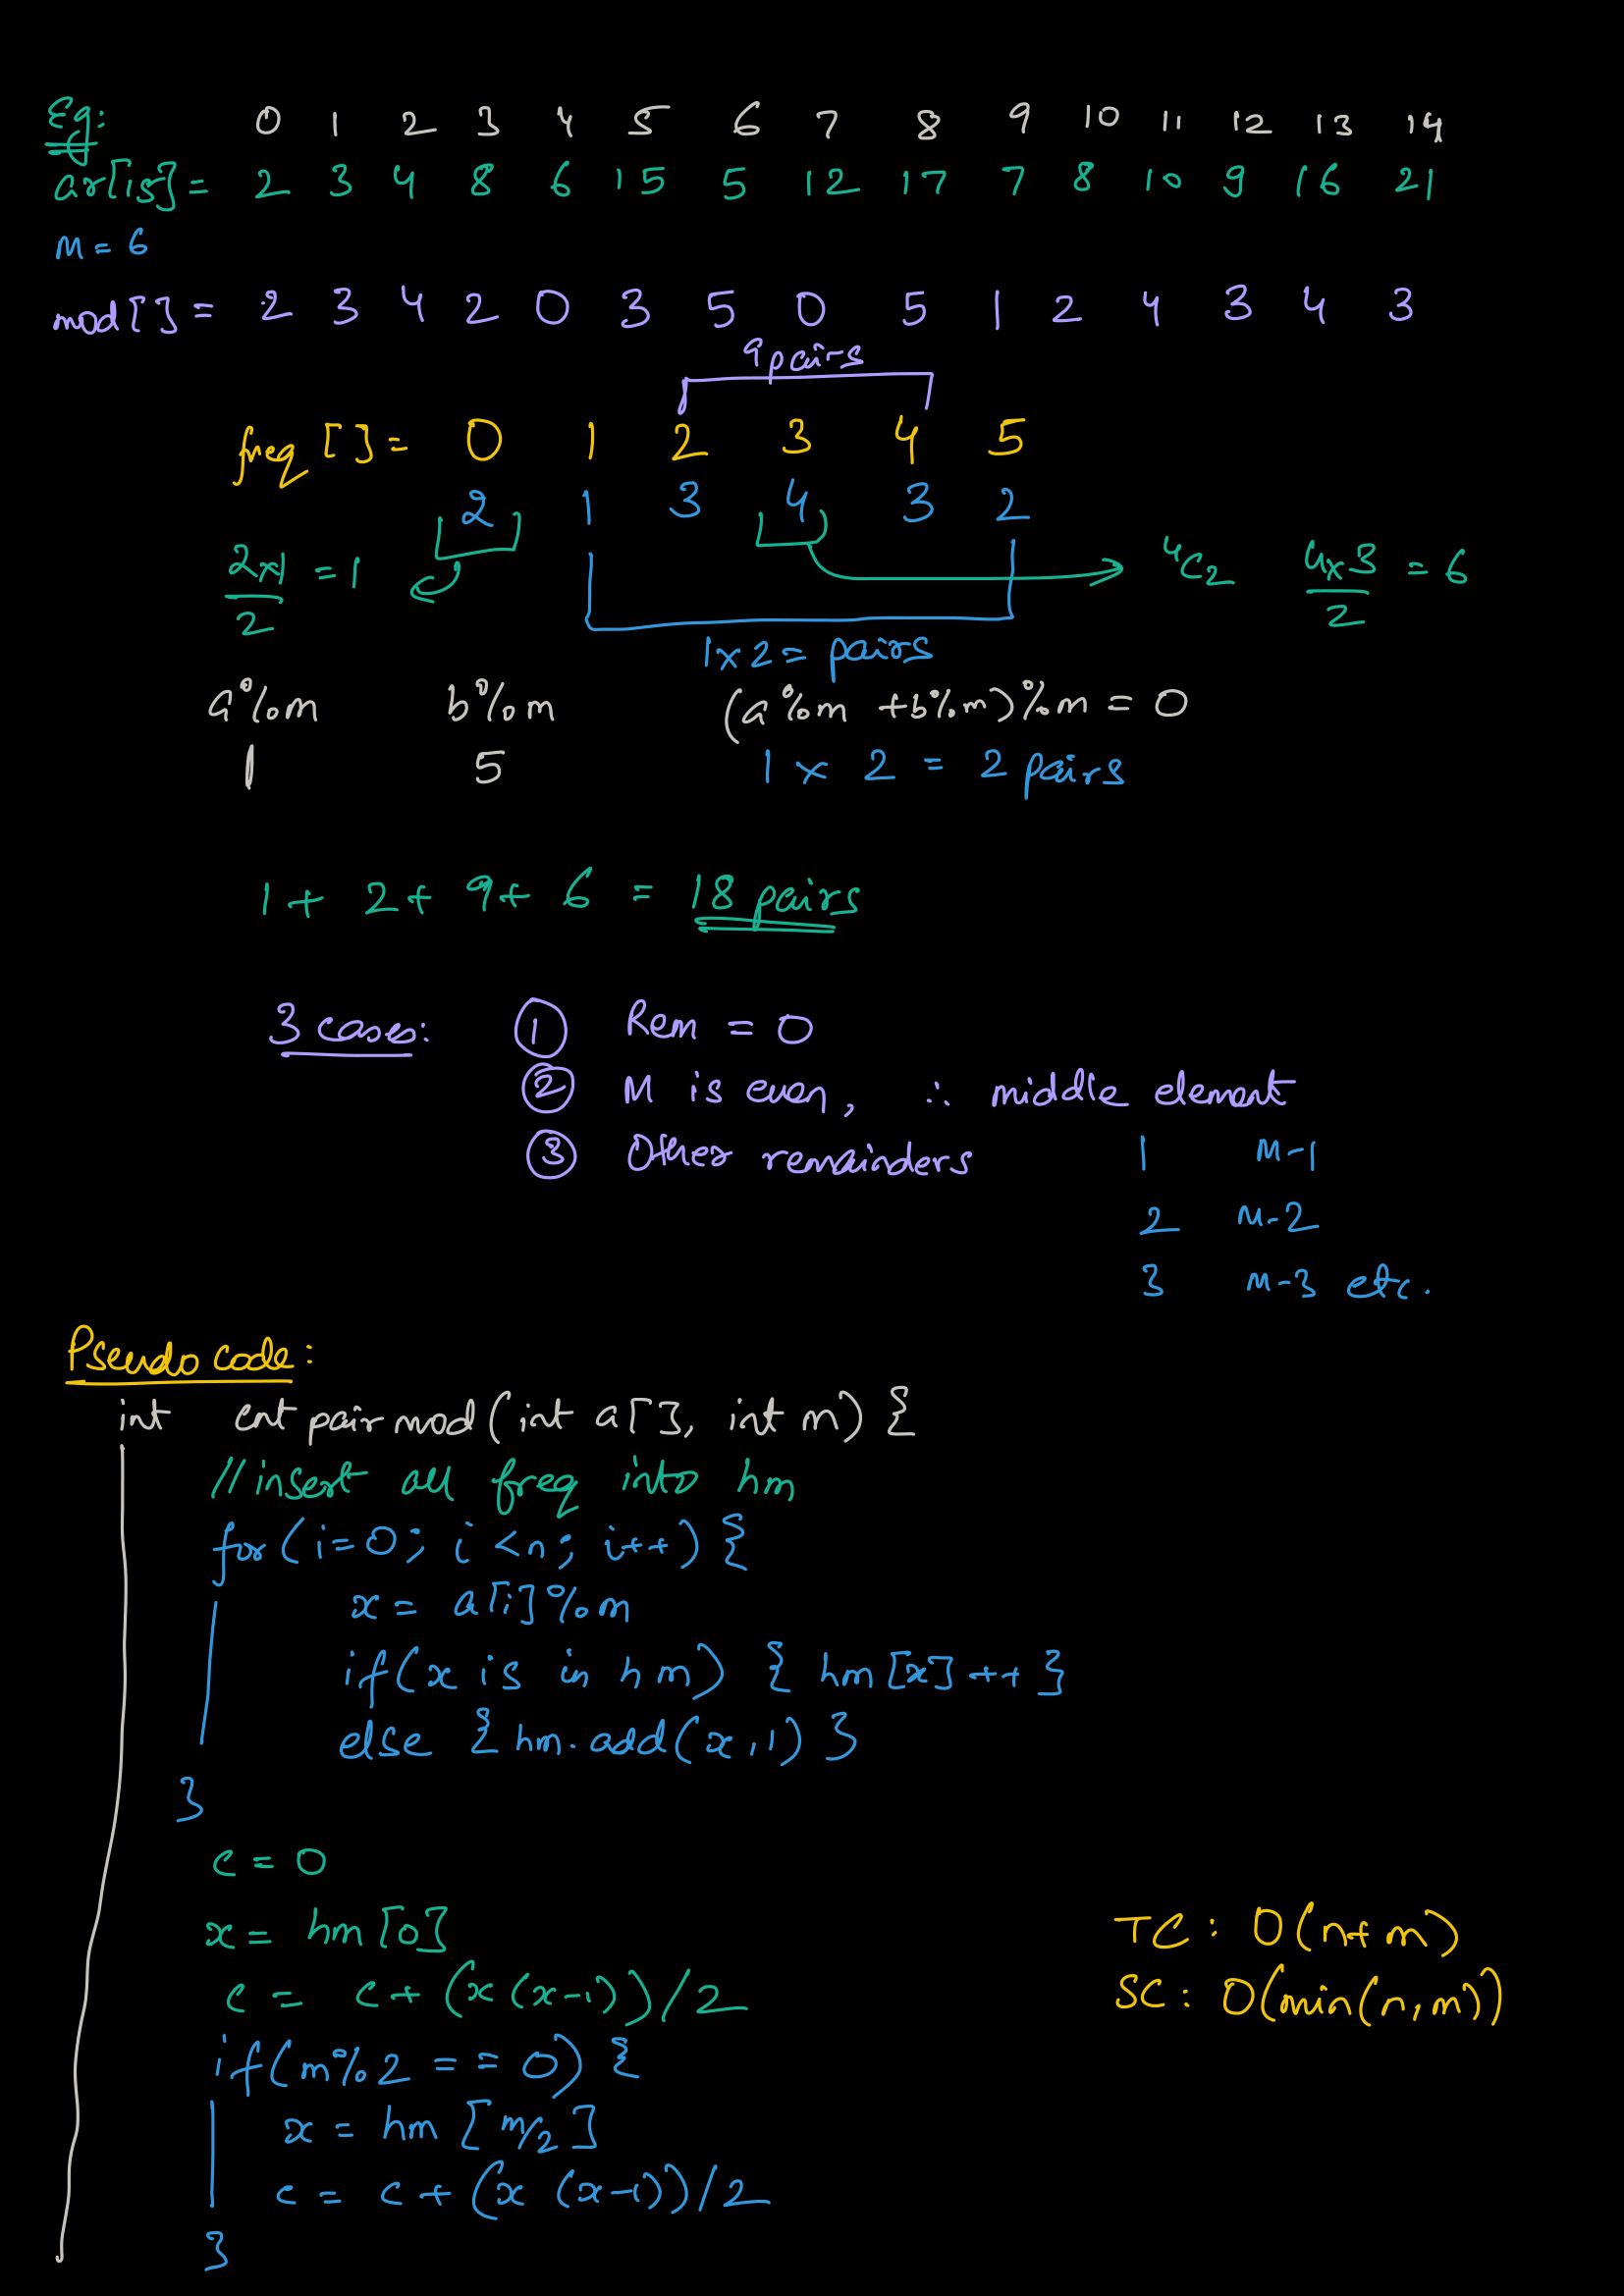 Eg: 0 1 2 3 4 5 6 7 8 9 10 11 12 13 14
ar[15] = 2 3 4 8 6 15 5 12 17 7 8 10 9 16 21
M = 6
mod[] = 2 3 4 2 0 3 5 0 5 1 2 4 3 4 3
9 pairs
freq [] = 0 1 2 3 4 5
2 1 3 4 3 2
2x1/2 = 1
4C2 4x3/2 = 6
1x2 = pairs
a%m b%m (a%m + b%m)%m = 0
1 5 1 x 2 = 2 pairs
1 + 2 + 9 + 6 = 18 pairs
3 cases: ① Rem = 0
② M is even, ∴ middle element
③ Other remainders
1 M-1
2 M-2
3 M-3 etc.
Pseudo code:
int cnt pair mod (int a[], int m) {
//insert all freq into hm
for (i=0; i<n; i++) {
x = a[i]%m
if (x is in hm) { hm[x]++ }
else { hm.add(x,1) }
}
c = 0
x = hm[0]
c = c + (x(x-1))/2
if (m%2 == 0) {
x = hm[m/2]
c = c + (x(x-1))/2
}
TC: O(n+m)
SC: O(min(n,m))